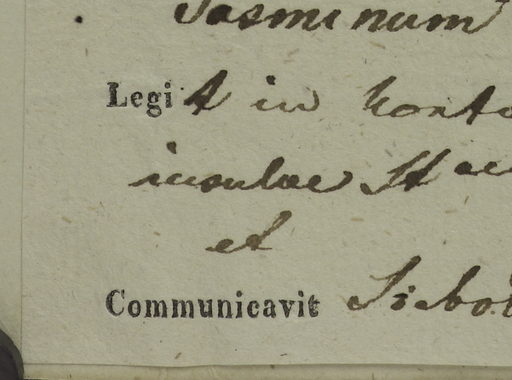 Jasminum
Legit in horto
insulae St
et
Communicavit Siebo